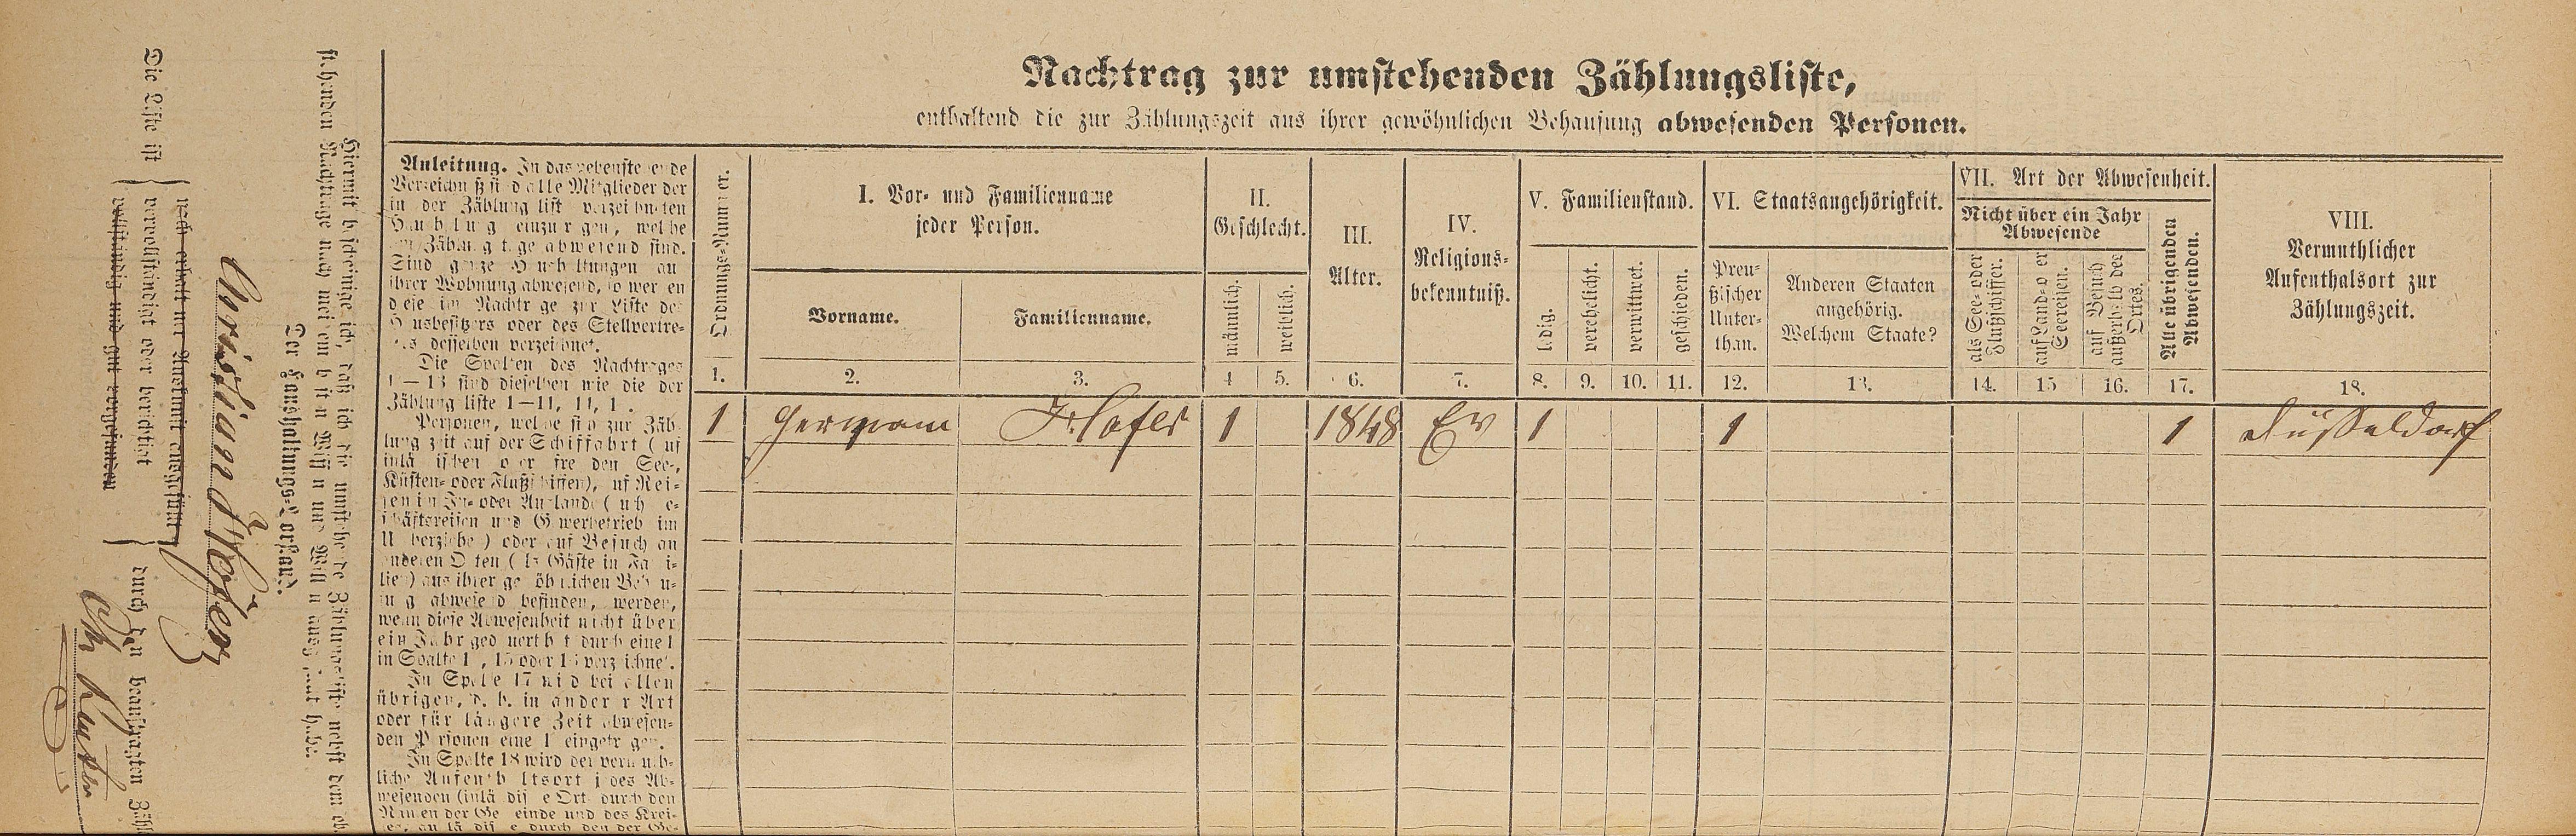 Nachtrag zur umstehenden Zählungsliste,
enthaltend die zur Zählungszeit aus ihrer gewöhnlichen Behausung abwesenden Personen.
Anleitung. In das
Verzeichniß sind alle Mitglieder der
in der Zählungsliste verzeichneten
Haushaltung einzutragen, welche
am Zählungstage abwesend sind.
Sind ganze Haushaltungen aus
ihrer Wohnung abwesend, so werden
diese im Nachtrage zur Liste des
Hausbesitzers oder des Stellvertre-
ters desselben verzeichnet.
Die Spalten des Nachtrages
1—13 sind dieselben wie die der
Zählungsliste
Personen, welche sich zur Zäh-
lungszeit auf der Schiffahrt (auf
inländischen oder fremden See-,
Küsten- oder Flußschiffen), auf Rei-
sen im In- oder Auslande (auch Ge-
schäftsreisen und Gewerbetrieb im
Umherziehen) oder auf Besuch an
anderen Orten (als Gäste in Fami-
lien) aus ihrer gewöhnlichen Behau-
sung abwesend befinden, werden,
wenn diese Abwesenheit nicht über
ein Jahr gedauert hat durch eine 1
in Spalte 14, 15 oder 16 verzeichnet.
In Spalte 17 wird bei allen
übrigen, d. h. in anderer Art
oder für längere Zeit abwesen-
den Personen eine 1 eingetragen.
In Spalte 18 wird der vermuth-
liche Aufenthaltsort jedes Ab-
wesenden (inländische Orte durch den
Namen der Gemeinde und des Krei-
Ordnungs-Nummer.
I. Vor- und Familienname
jeder Person.
Vorname.
Familienname.
II.
Geschlecht.
männlich.
weiblich.
III.
Alter.
IV.
Religions-
bekenntniß.
V. Familienstand.
ledig.
verehelicht.
verwittwet.
geschieden.
VI. Staatsangehörigkeit.
Preu-
ßischer
Unter-
than.
Anderen Staaten
angehörig.
Welchem Staate?
VII. Art der Abwesenheit.
Nicht über ein Jahr
Abwesende
als See- oder
Flußschiffer.
auf Land- oder
Seereisen.
auf Besuch
außerhalb des
Ortes.
Alle übrigenden
Abwesenden.
VIII.
Vermuthlicher
Aufenthalsort zur
Zählungszeit.
1. 2. 3. 4 5. 6. 7. 8. 9. 10. 11. 12. 13. 14. 15 16. 17. 18.
1 Hermann 1 1848 Ev 1 1 1 Düsseldorf
Hiermit bescheinige ich, daß ich die umstehende Zählungsliste nebst dem
stehenden Nachtrage nach meinem besten Wissen und Willen ausgefüllt habe.
Der Haushaltungs-Vorstand.
Christian
nach erhaltener Auskunft ausgefüllt
Die Liste ist vervollständigt oder berichtigt durch den beauftragten
vollständig und gut vorgefunden